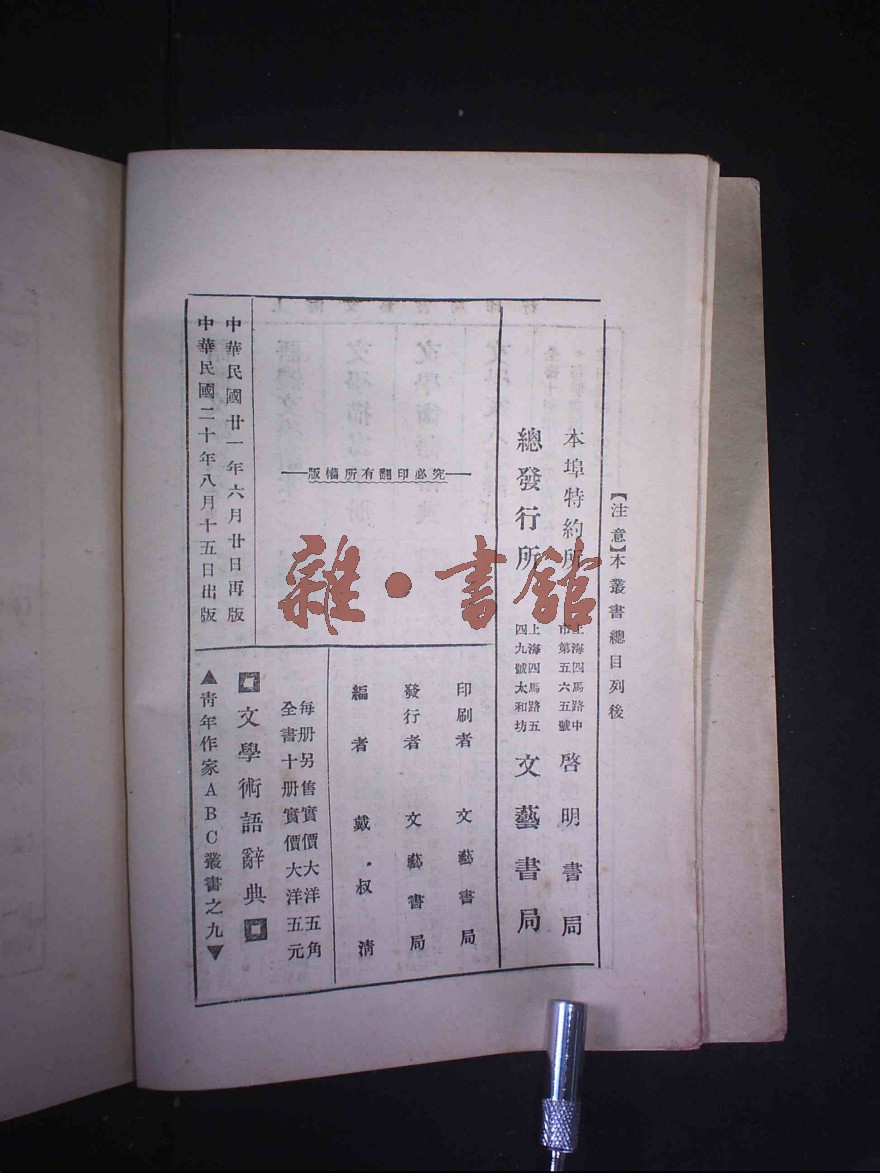 【注意】本叢書總目列後
本埠特約所
上海四馬路中
市第五六五號
啓明書局
總發行所
上海四馬路五
四九號太和坊
文藝書局
版權所有翻印必究
印刷者 文藝書局
發行者 文藝書局
編者 戴·叔清
每册另售實價大洋五角
全書十册實價大洋五元
中華民國廿一年六月廿日再版
中華民國二十年八月十五日出版
文學術語辭典
▲青年作家ABC叢書之九▼
雜·書館